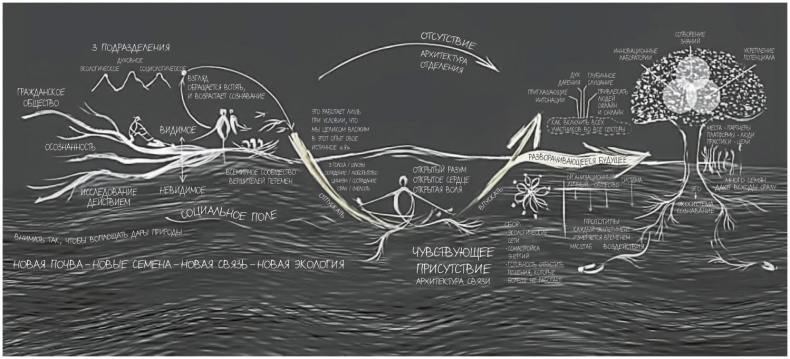 3 ПОДРАЗДЕЛЕНИЯ
ДУХОВНОЕ
ЭКОЛОГИЧЕСКОЕ
СОЦИОЛОГИЧЕСКОЕ
ВЗГЛЯД
ОБРАЩАЕТСЯ ВСПЯТЬ,
И ВОЗРАСТАЕТ СОЗНАВАНИЕ
ГРАЖДАНСКОЕ
ОБЩЕСТВО
ОСОЗНАННОСТЬ
ИССЛЕДОВАНИЕ
ДЕЙСТВИЕМ
ВИДИМОЕ
НЕВИДИМОЕ
ВСЕМИРНОЕ СООБЩЕСТВО
ВЕРШИТЕЛЕЙ ПЕРЕМЕН
СОЦИАЛЬНОЕ ПОЛЕ
ВНИМАТЬ ТАК, ЧТОБЫ ВОПЛОЩАТЬ ДАРЫ ПРИРОДЫ
НОВАЯ ПОЧВА – НОВЫЕ СЕМЕНА – НОВАЯ СВЯЗЬ – НОВАЯ ЭКОЛОГИЯ
ОТСУТСТВИЕ
АРХИТЕКТУРА
ОТДЕЛЕНИЯ
ЭТО РАБОТАЕТ ЛИШЬ
ПРИ УСЛОВИИ, ЧТО
МЫ ЦЕЛИКОМ ВЛОЖИМ
В ЭТОТ ОПЫТ СВОЕ
ИСТИННОЕ «Я»
ОТПУСКАТЬ
ОТКРЫТЫЙ РАЗУМ
ОТКРЫТОЕ СЕРДЦЕ
ОТКРЫТАЯ ВОЛЯ
ВПУСКАТЬ
ЧУВСТВУЮЩЕЕ
ПРИСУТСТВИЕ
АРХИТЕКТУРА СВЯЗИ
ПРИГЛАШАЮЩИЕ
ИНТОНАЦИИ
ДУХ
ДАРЕНИЯ
ГЛУБИННОЕ
СЛУШАНИЕ
ПРИВЛЕКАТЬ
ЛЮДЕЙ
ОНЛАЙН
И ОФЛАЙН
КАК ВКЛЮЧИТЬ ВСЕХ
УЧАСТНИКОВ ВО ВСЕ СЕКТОРЫ
РАЗВОРАЧИВАЮЩЕЕСЯ БУДУЩЕЕ
СБОР
ЭКОЛОГИЧЕСКИЕ
СЕТИ
ЭНЕРГИЙ
ПРОТОТИПЫ
КАЖДЫЙ ЭКСПЕРИМЕНТ
ИЗМЕРЯЕТСЯ ВРЕМЕНЕМ
МАСШТАБ
ВОЗДЕЙСТВИЯ
СОТВОРЕНИЕ
ЗНАНИЙ
ИННОВАЦИОННЫЕ
ЛАБОРАТОРИИ
УКРЕПЛЕНИЕ
ПОТЕНЦИАЛА
МЕСТА - ПАРТНЕРЫ
ПЛАТФОРМЫ - ЛЮДИ
ПРАКТИКИ - ЦЕЛИ
МНОГО СЕМЯН
ДАЮТ ВСХОДЫ СРАЗУ
ЭКОСИСТЕМА
СОЗНАВАНИЕ